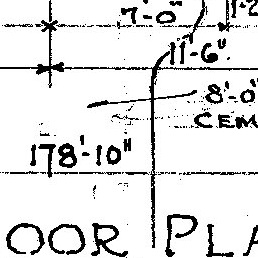 7'-0"
11'-6"
8'-0"
CEM
178'-10"
OOR PLA